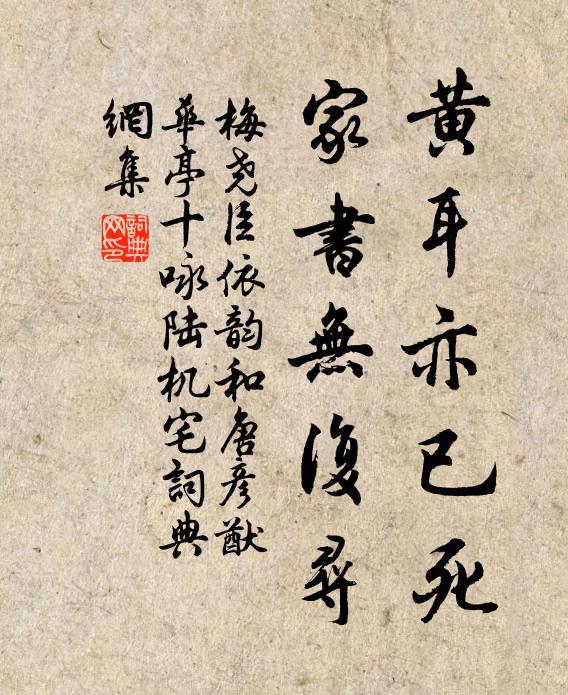 黄耳亦已死
家書無復尋
梅尧臣依韵和唐彦猷
華亭十咏陆机宅詞典
網集
詞典
网印